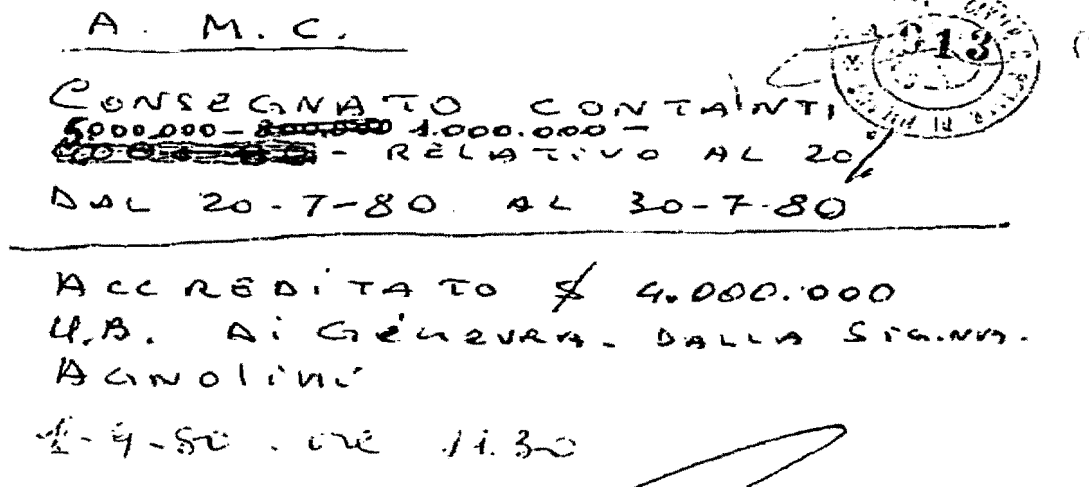 A. M. C.
913
CONSEGNATO CONTANTI
5000.000 - 1.000.000 -
- RELATIVO AL 20
DAL 20-7-80 AL 30-7-80
ACCREDITATO $ 4.000.000
U.B. Di GiNEVRA. DALLA SIG.NA.
AGNOLiNi
-9-80. ORE 11.30